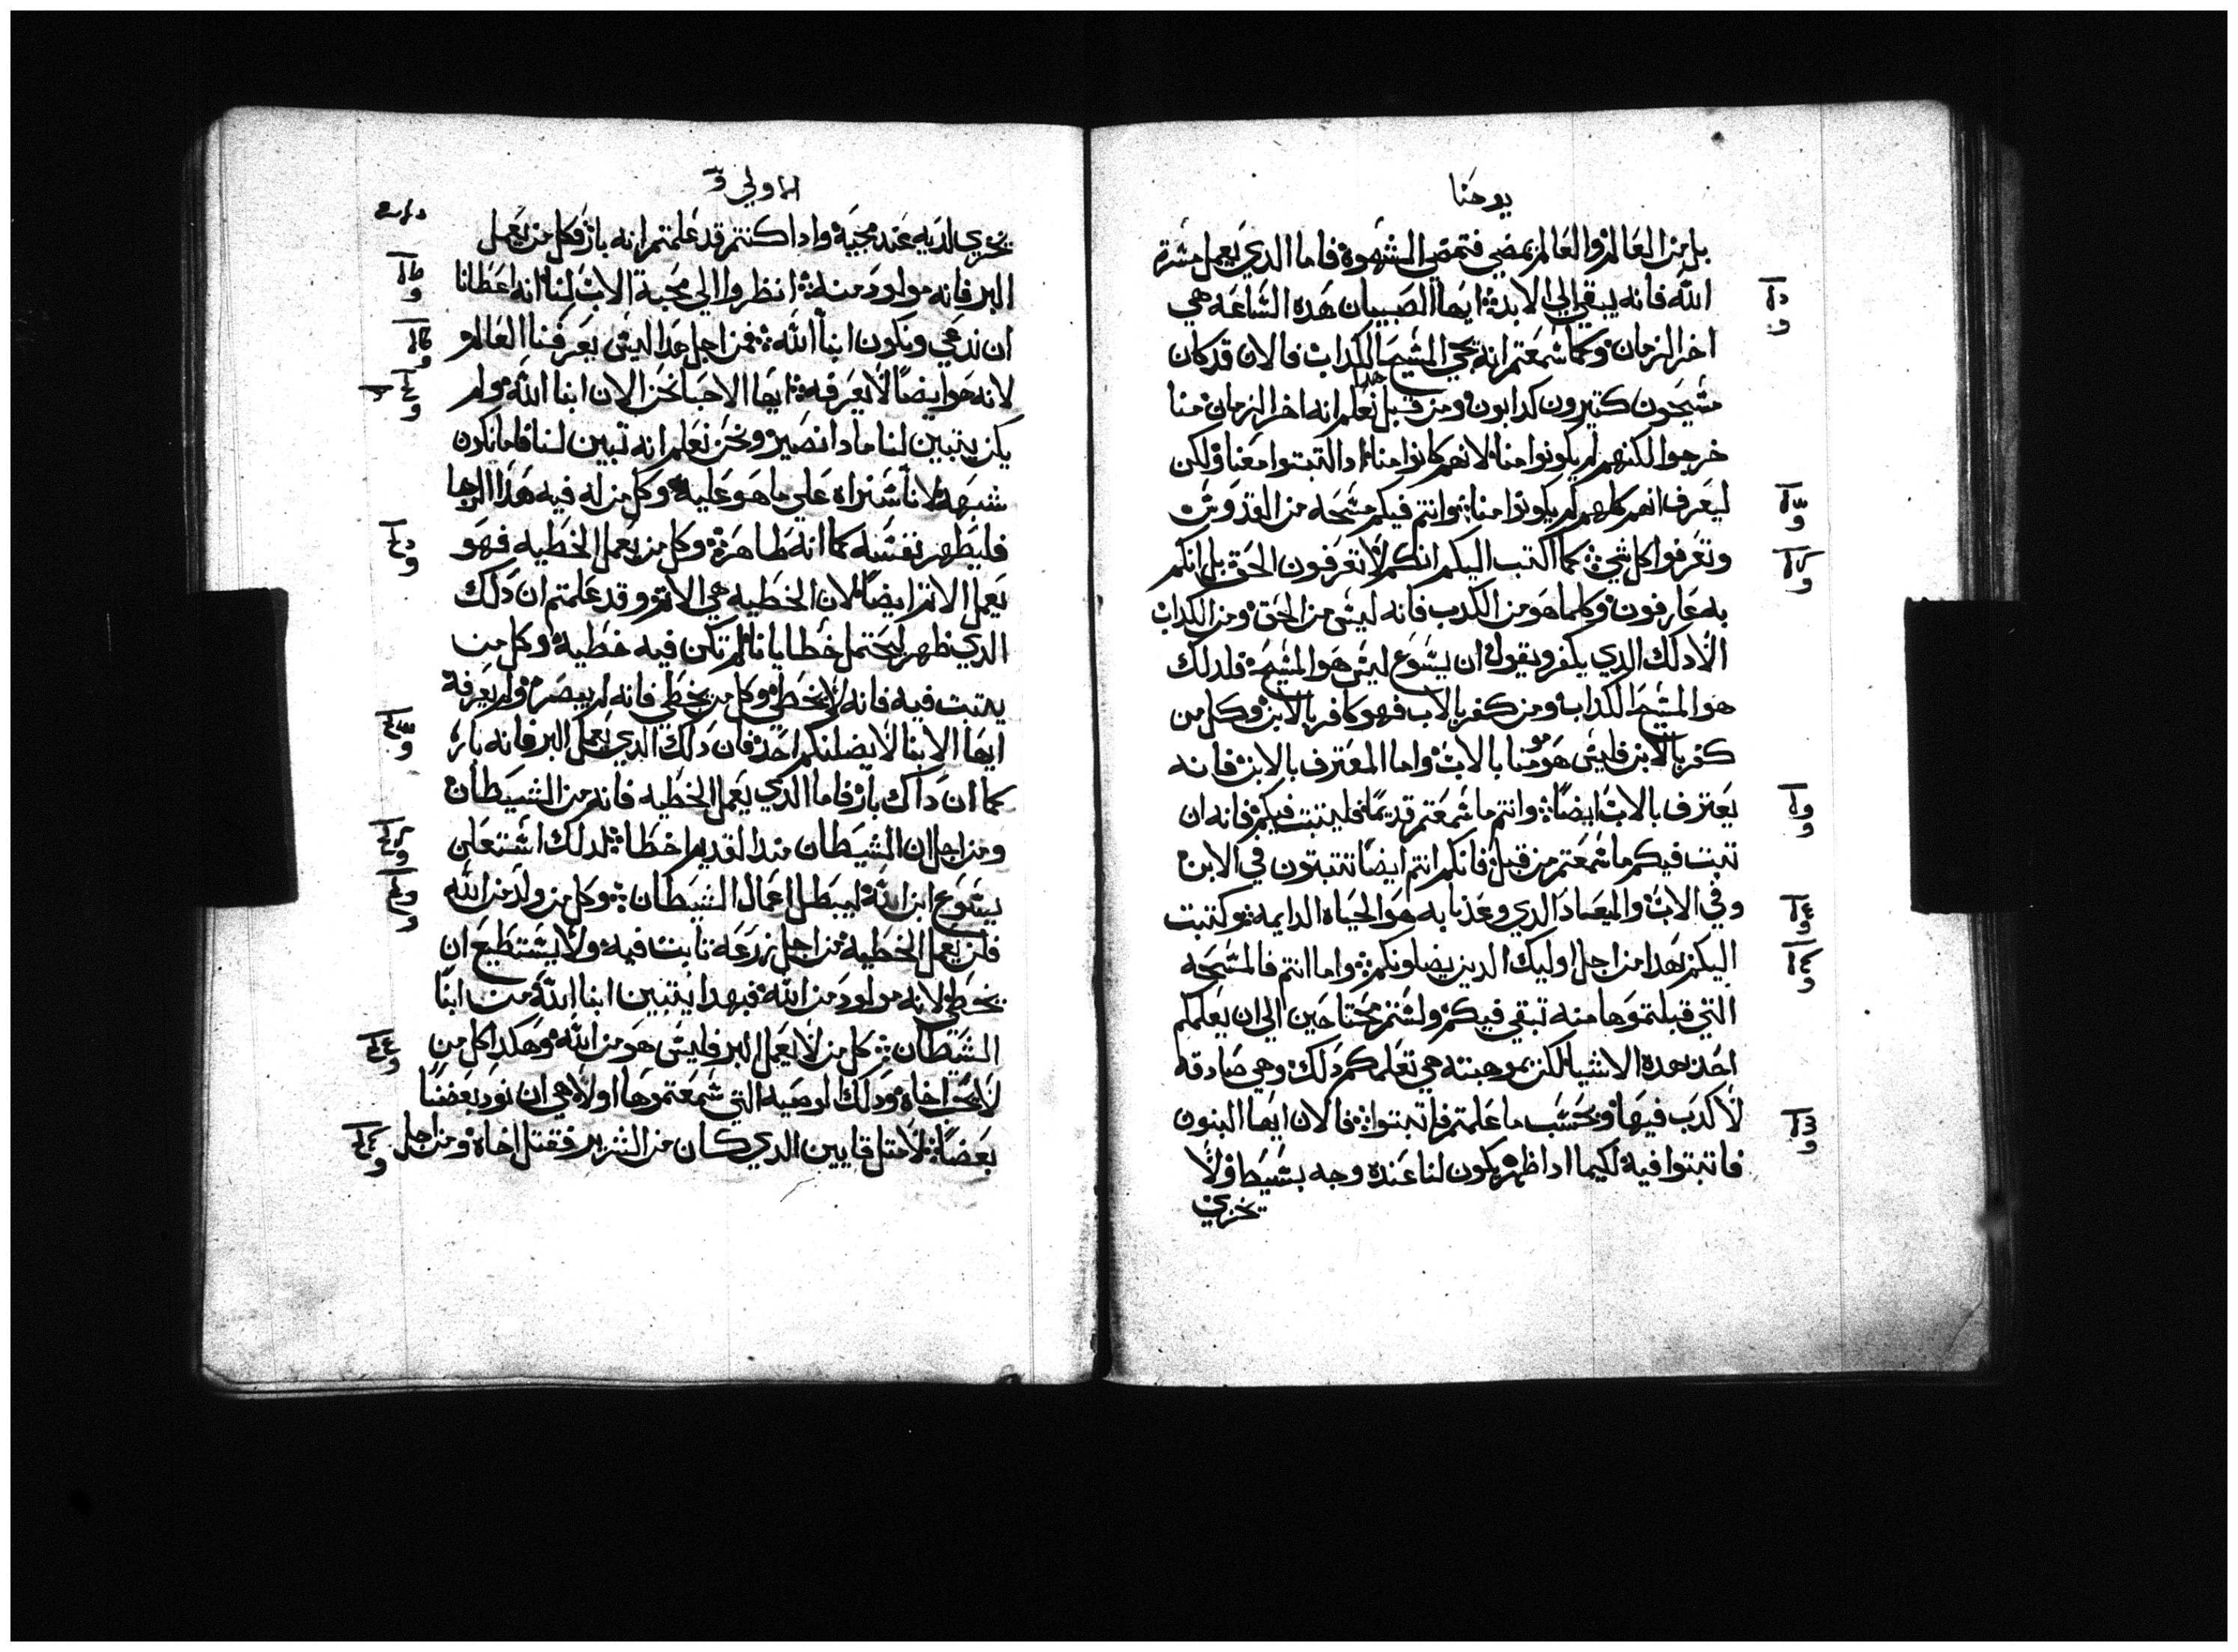 يوحنا
بل من العالم والعالم يمضي فتمضي الشهوة فاما الدي يعمل مشرة
الله فانه يبقي الي الابد ايها الصبيان هده الساعه هي
اخر الزمان وكما سمعتم انه يجي المسيح الكداب فالان قد كان
مسيحون كتيرون كدابون ومن قبل هدا نعلم انه اخر الزمان منا
خرجوا لكنهم لم يكونوا منا لانهم كانوا منا ادا لتبتوا معنا ولكن
ليعرف انهم كلهم لم يكونوا منا وانتم فيكم مسحه من القدوس
وتعرفوا كل شي كما اكتب اليكم انكم لا تعرفون الحق بل انكم
به عارفون وكلما هو من الكدب فانه ليس من الحق ومن الكداب
الا دلك الدي يكفر ويقول ان يسوع ليس هو المسيح فلدلك
هو المسيح الكداب ومن كفر بالاب فهو كافر بالابن وكل من
كفر بالابن فليس هو مومنا بالاب واما المعترف بالابن فانه
يعترف بالاب ايضا وانتم ما سمعتم قديما فليتبت فيكم فانه ان
تبت فيكم ما سمعتم من قبل فانكم انتم ايضا تتبتون في الابن
وفي الاب والميعاد الدي وعدنا به هو الحياه الدايمه وكتبت
اليكم بهدا من اجل اوليك الدين يضلونكم واما انتم فالمسحه
التي قبلتموها منه تبقي فيكم ولستم محتاجين الي ان يعلمكم
احد بهده الاشيا لكن بموهبته هي تعلمكم دلك وهي صادقه
لا كدب فيها وبحسب ما علمتم فاتبتوا فالان ايها البنون
فاتبتوا فيه لكيما ادا ظهر يكون لنا عنده وجه بسيط ولا
نخزي
الاولي
نخزي لديه عند مجيه وادا كنتم قد علمتم انه بار فكل من يعمل
البر فانه مولود منه انظروا الي محبة الاب لنا انه اعطانا
ان ندعي ونكون ابنا الله فمن اجل هدا ليس يعرفنا العالم
لانه هو ايضا لا يعرفه ايها الاحبا نحن الان ابنا الله ولم
يكن يتبين لنا مادا نصير ونحن نعلم انه تبين لنا فاما نكون
شبهه لانا سنراه علي ما هو عليه وكل من له فيه هدا الرجا
فليطهر نفسه كما انه طاهر وكل من يعمل الخطيه فهو
يعمل الاتم ايضا لان الخطيه هي الاتم وقد علمتم ان دلك
الدي ظهر ليحتمل خطايانا لم تكن فيه خطيه وكل من
يتبت فيه فانه لا يخطي وكل من يخطي فانه لم يبصره ولم يعرفه
ايها الابنا لا يضلنكم احد فان دلك الدي يعمل البر فانه بار
كما ان داك بار فاما الدي يعمل الخطيه فانه من الشيطان
ومن اجل ان الشيطان مند القديم اخطا لدلك استعلن
يسوع ابن الله ليبطل اعمال الشيطان وكل من ولد من الله
فلن يعمل الخطيه من اجل زرعه تابت فيه ولا يستطيع ان
يخطي لانه مولود من الله فبهدا يتبين ابنا الله من ابنا
الشيطان كل من لا يعمل البر فليس هو من الله وهكدا كل من
لا يحب اخاه ودلك الوصيه التي سمعتموها اولا هي ان نود بعضنا
بعضا لا متل قايين الدي كان من الشرير فقتل اخاه ومن اجل